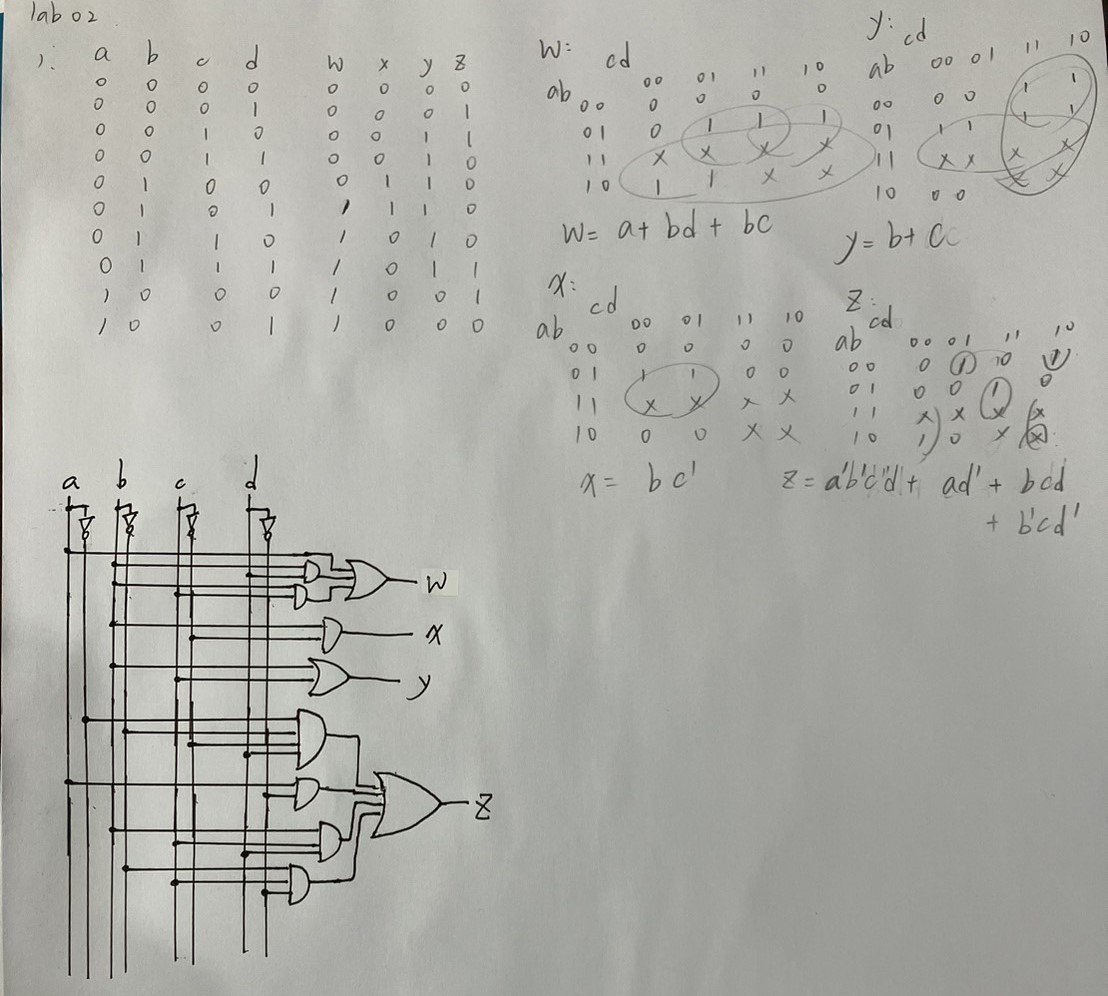 lab 02
1.
a b c d w x y z
0 0 0 0 0 0 0 0
0 0 0 1 0 0 0 1
0 0 1 0 0 0 1 1
0 0 1 1 0 0 1 0
0 1 0 0 0 1 1 0
0 1 0 1 1 1 1 0
0 1 1 0 1 0 1 0
0 1 1 1 1 0 1 1
1 0 0 0 1 0 0 1
1 0 0 1 1 0 0 0
W:
cd
00 01 11 10
ab
00 0 0 0 0
01 0 1 1 1
11 x x x x
10 1 1 x x
W= a+ bd + bc
y:
cd
ab 00 01 11 10
00 0 0 1 1
01 1 1 1 1
11 x x x x
10 0 0 x x
y= b+ C
x:
cd
ab 00 01 11 10
00 0 0 0 0
01 1 1 0 0
11 x x x x
10 0 0 x x
x= bc'
Z:
cd
ab 00 01 11 10
00 0 1 0 1
01 0 0 1 0
11 x x x x
10 1 0 x x
Z= a'b'c'd + ad' + bcd
+ b'cd'
a b c d
W
x
y
Z